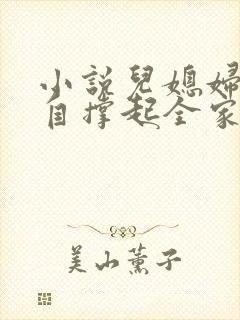 小說兒媳婦
自撐起全家
美山薰子